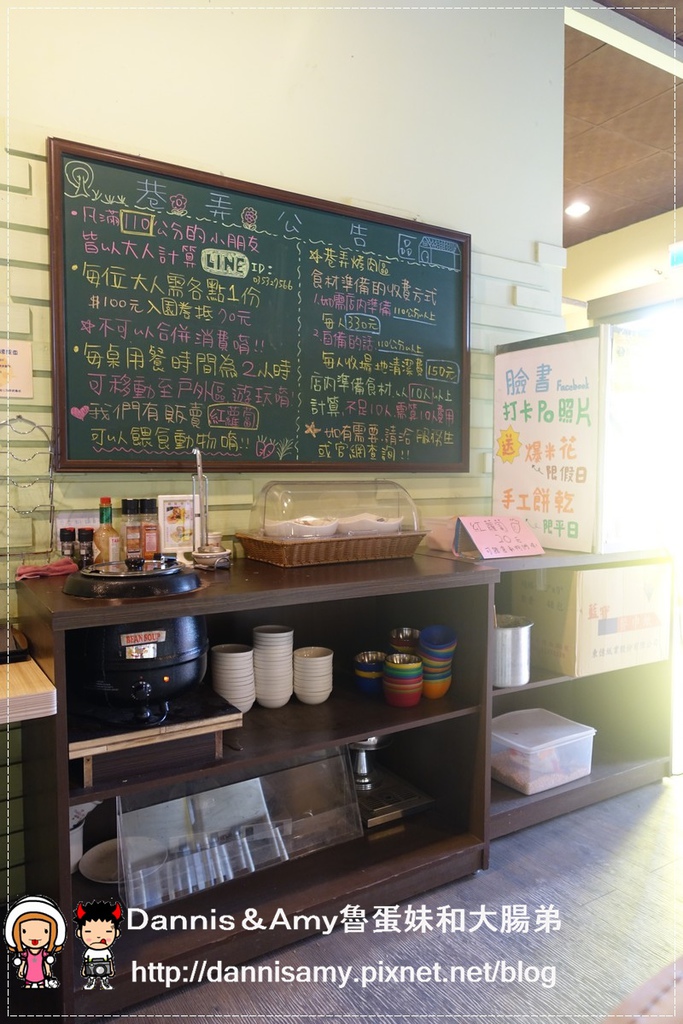 巷弄公告
•凡滿110公分的小朋友
皆以大人計算
LINE ID:
•每位大人需各點1份
#100元入園券抵70元
*不可以合併消費唷!!
•每桌用餐時間為2小時
可移動至戶外區遊玩唷!
我們有販賣紅蘿蔔
可以餵食動物唷!!
*巷弄烤肉區
食材準備的收費方式
1.如需店內準備 110公分以上
每人330元
2.自備的話 110公分以上
每人收場地清潔費150元
店內準備食材,以10人以上
計算,不足10人,需算10人費用
*如有需要,請洽服務生
或官網查詢!!
臉書 Facebook
打卡Po照片
送 爆米花
限假日
手工餅乾
平日
紅蘿蔔
20元
BEAN SOUP
Dannis & Amy魯蛋妹和大腸弟
http://dannisamy.pixnet.net/blog